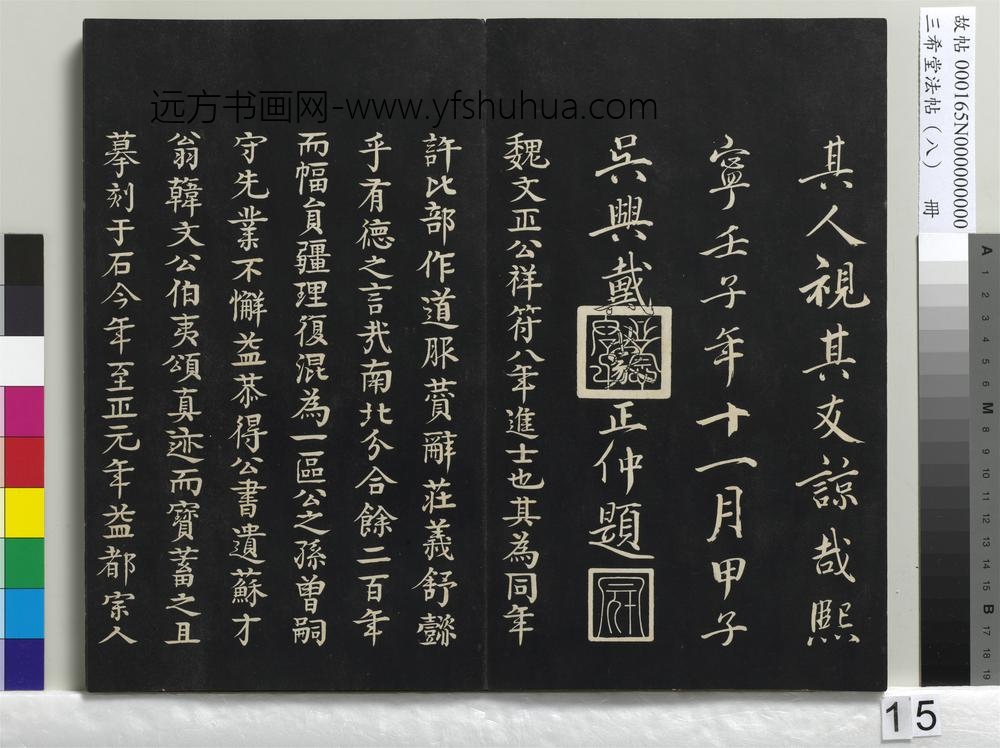 其人視其友諒哉熙
寧壬子年十一月甲子
吳興戴
正仲題
魏文正公祥符八年進士也其為同年
許比部作道服賛辭莊義舒懿
乎有德之言哉南北分合餘二百年
而幅員疆理復混為一區公之孫曾嗣
守先業不懈益恭得公書遺蘇才
翁韓文公伯夷頌真迹而寶蓄之且
摹刻于石今年至正元年益都宗人
远方书画网-www.yfshuhua.com
故帖 000165N000000000
三希堂法帖(八) 冊
A 1 2 3 4 5 6 M 8 9 10 11 12 13 14 15 B 17 18 19
15